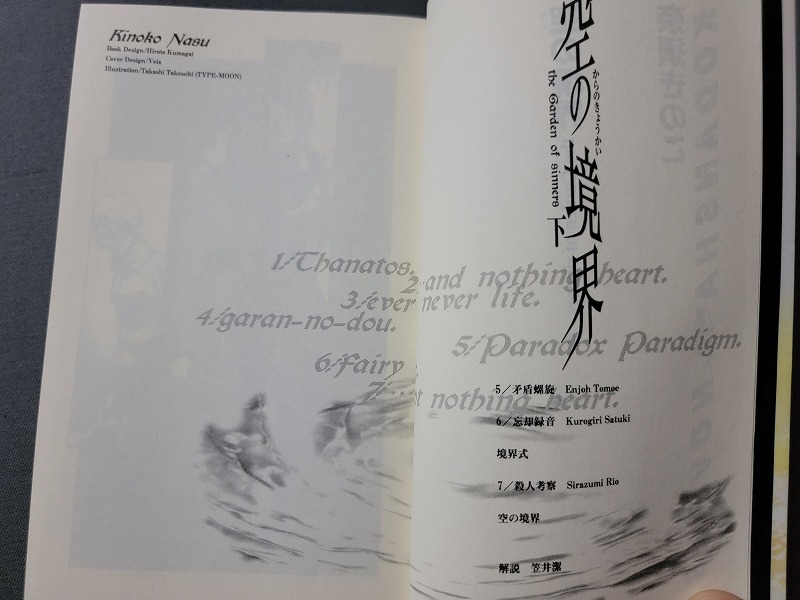 Kinoko Nasu
Book Design/Hiroto Kumagai
Cover Design/Veia
Illustration/Takashi Takeuchi (TYPE-MOON)
空の境界
からのきょうかい
the Garden of sinners
下
1/Thanatos.
2/and nothing heart.
3/ever never life.
4/garan-no-dou.
5/Paradox Paradigm.
6/Fairy
7/...not nothing heart.
5/矛盾螺旋 Enjoh Tomoe
6/忘却録音 Kurogiri Satuki
境界式
7/殺人考察 Sirazumi Rio
空の境界
解説 笠井潔